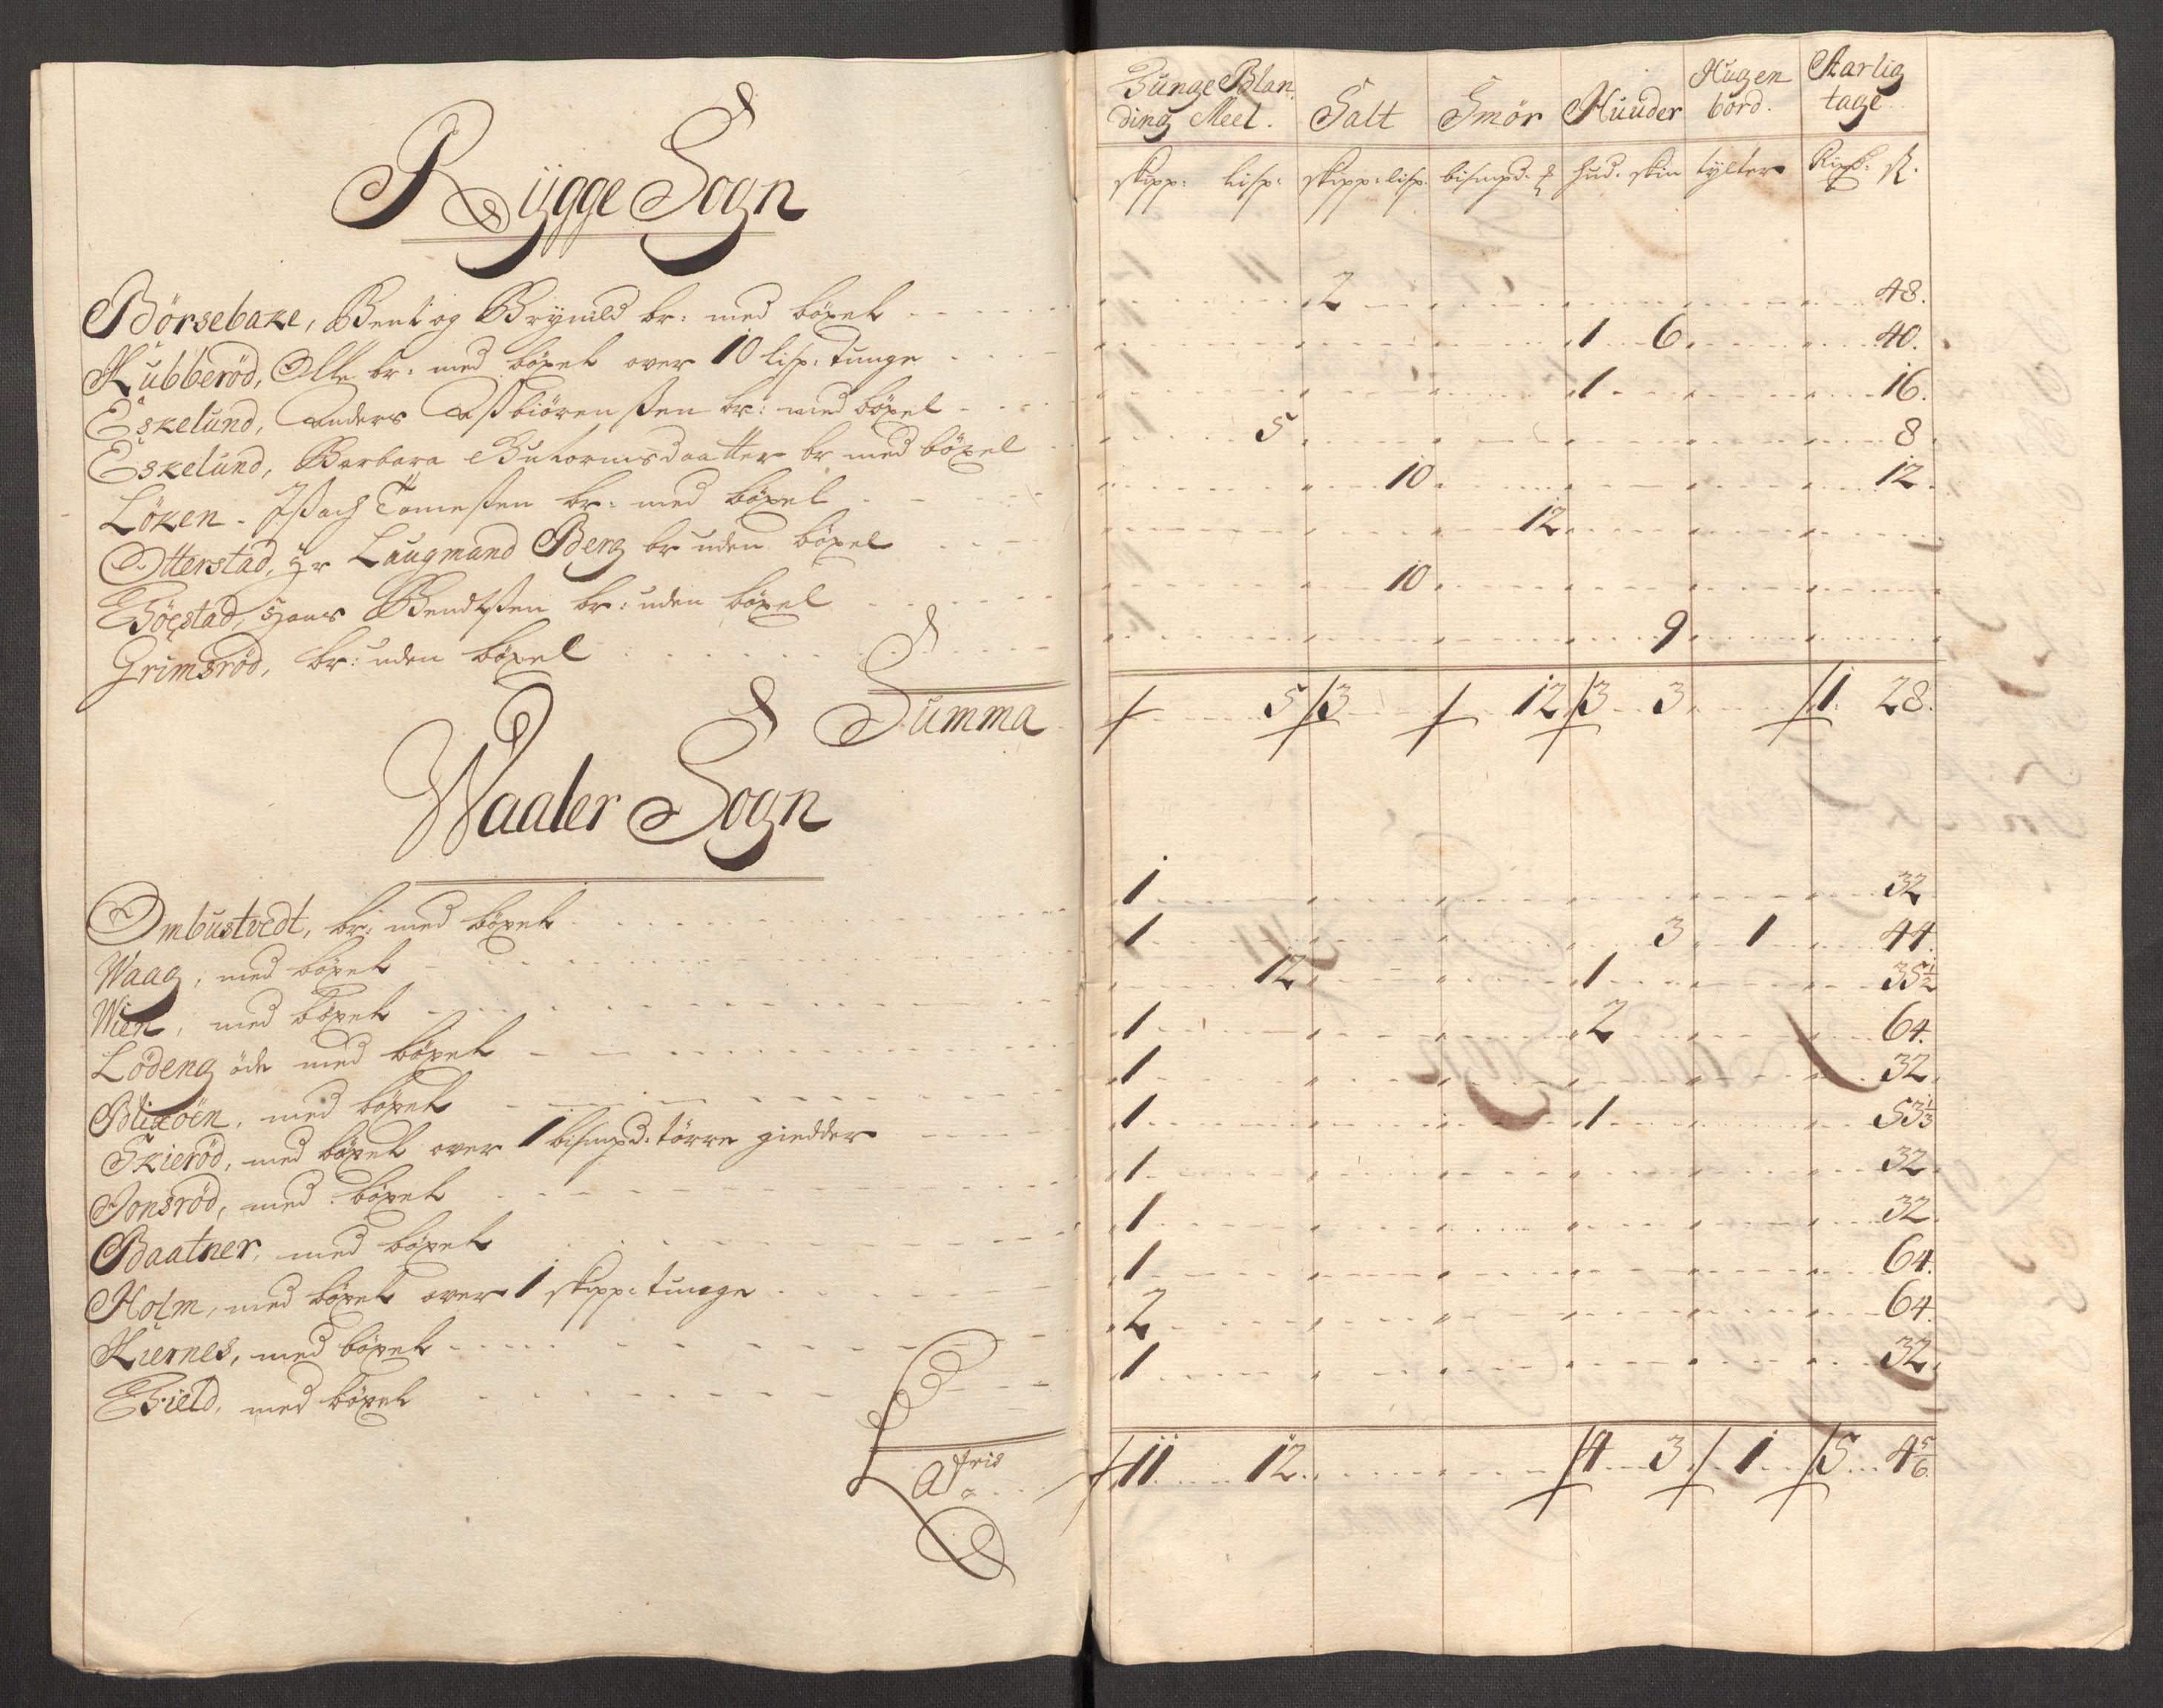 Rÿgge Sogn
Börsebake, Bent og Brÿnild br: med böxel
Kubberöd, Olle br: med böxel over 10 lisp: tunge
Eskelund, Anders Assbiörenssen br: med böxel
Eskelund, Barbara Gutormsdaatter br med böxel
Löken - Issach Tomessen br: med böxel
Otterstad, Hr Laugmand Berg br uden böxel
Töestad, Hans Bendtssen br: uden böxel
Grimsröd, br: uden böxel
Summa
Waaler Sogn
Ombustvedt, br: med böxel
Waag, med böxel
Wien, med böxel
Lödeng öde med böxel
Blixöen, med böxel
Skieröd, med böxel over 1 bismpd: törre giedder
Jonsröd, med böxel
Baatner, med böxel
Holm, med böxel over 1 skipp: tunge
Kiernes, med böxel
Tield, med böxel
Tunge Blan- | Salt | Smör | Huuder | Hugen | Aarlig
ding Meel. | bord. | tage
skipp: lisp: | skipp: lisp: | bismpd: | hud: skin | tylter | Rixd: ß.
2 48.
1 6 40.
1 16.
5 8
10 12.
12
10
9
5 3 12 3 3 1 28.
1 32
1 3 1 44.
12 1 35 1/2
1 2 64.
1 32
1 1 53 1/3
1 32
1 32
1 64.
2 64.
1 32
11 12 4 3 1 5 4 5/6